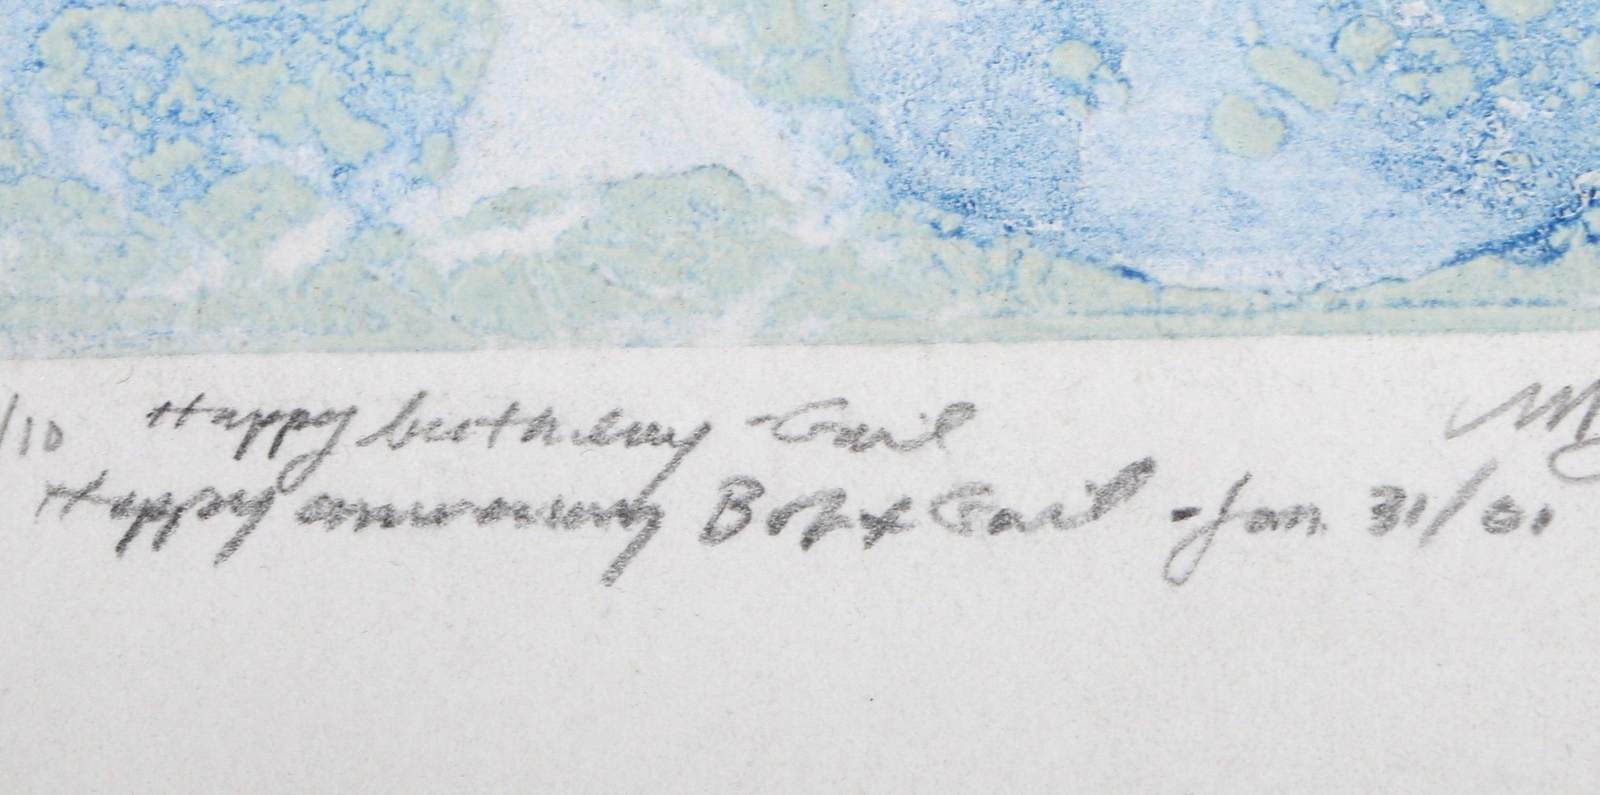 /10 Happy birthday Gail
Happy anniversary Bob + Gail - Jan. 31/81